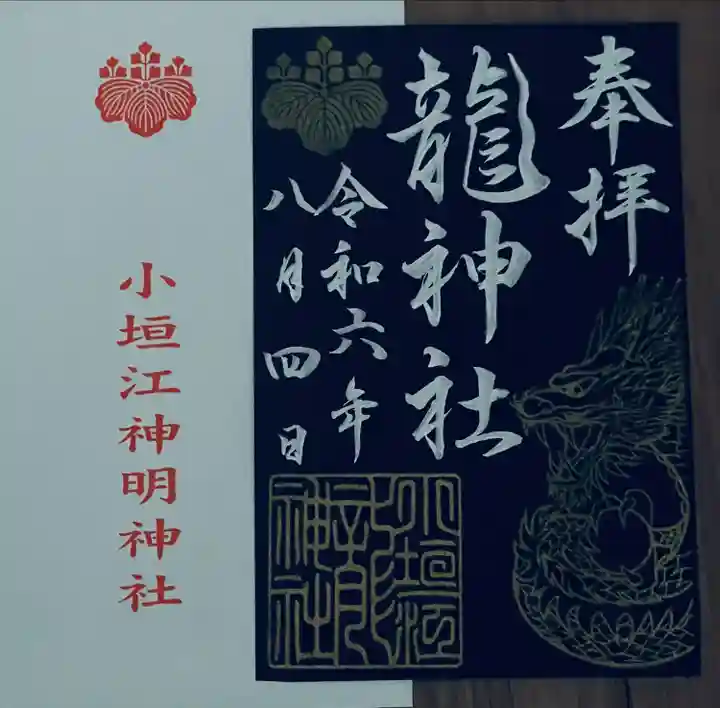 奉拝
龍神社
令和六年
八月四日
小垣江
龍
神社
小垣江神明神社